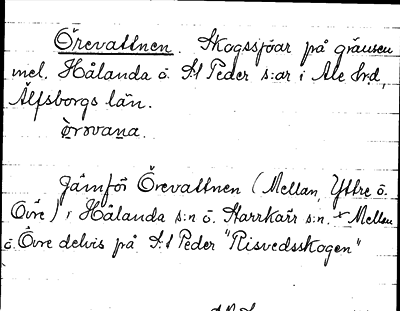 Örevattnen. Skogssjöar på gränsen
mel. Hålanda o. S:t Peder s:ar i Ale hrd,
Älfsborgs län.
òrəvana.
Jämför Örevattnen (Mellan, Yttre o.
Övre) i Hålanda s:n o. Starrkärr s:n. × Mellan
o. Övre delvis på S:t Peder "Risvedsskogen"